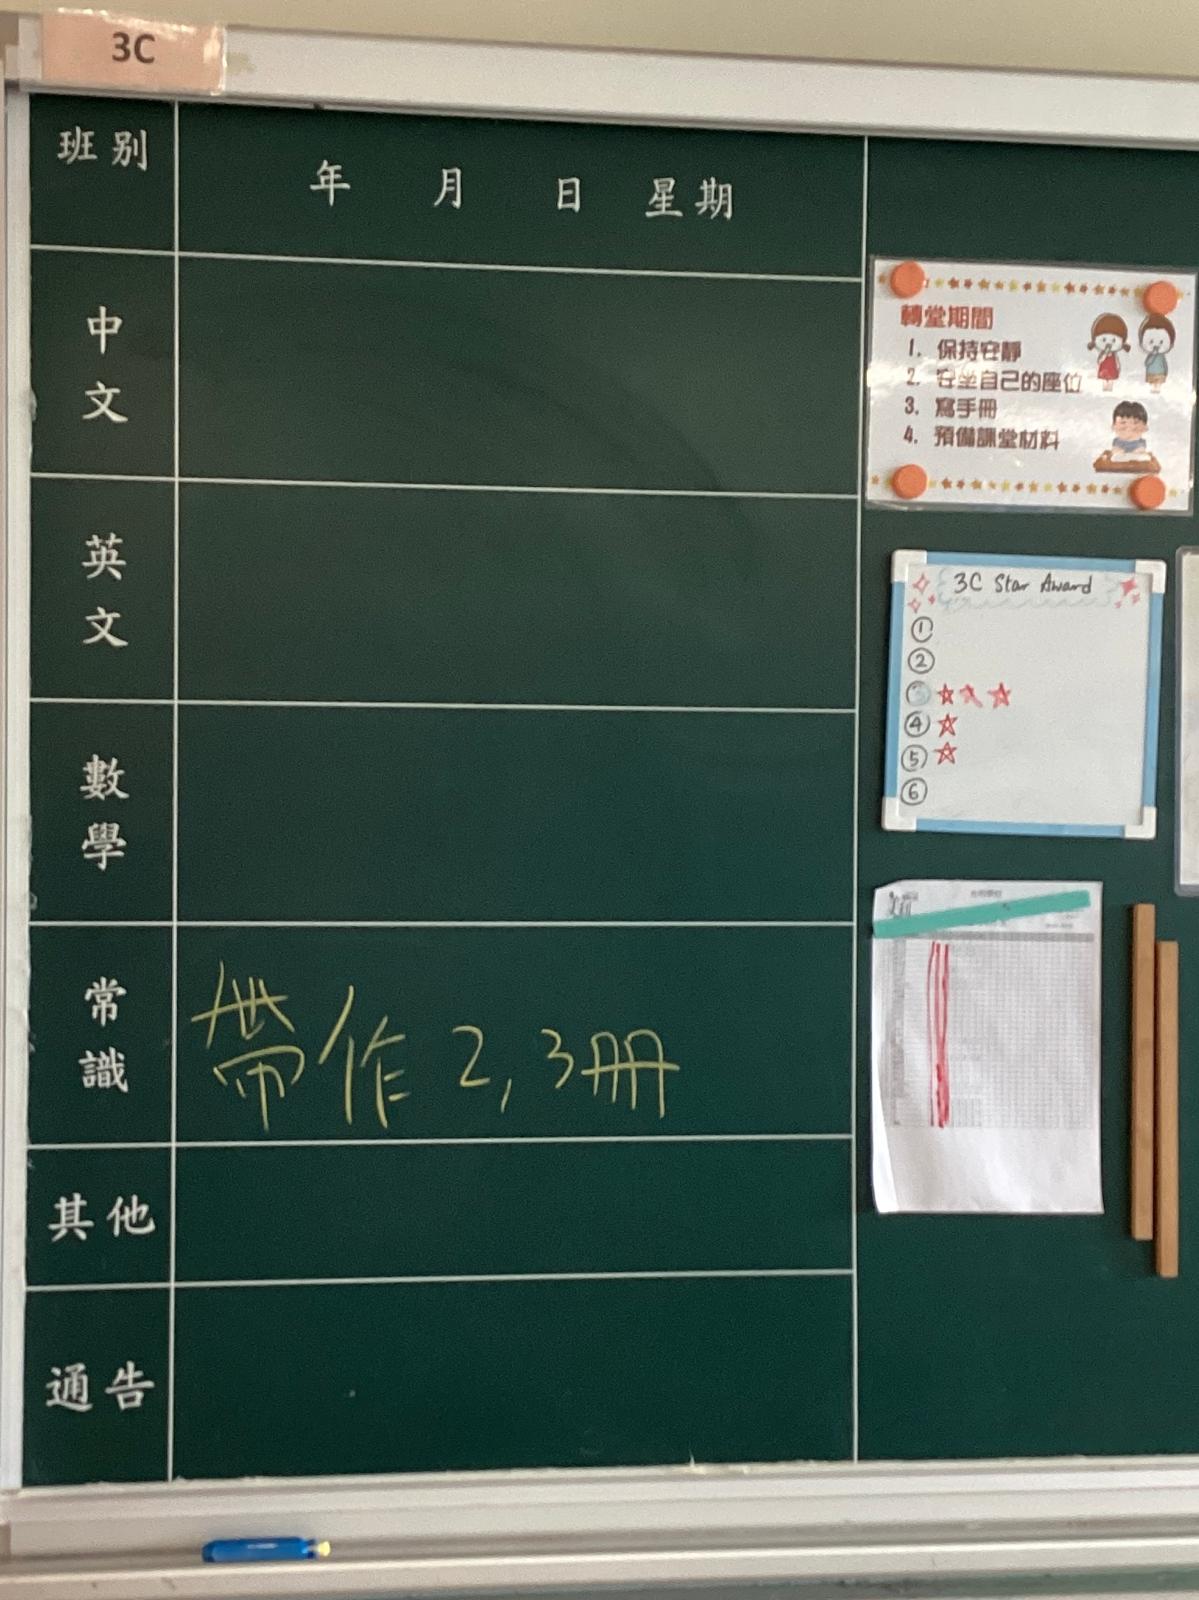 3C
班別
年 月 日 星期
中文
英文
數學
常識
帶作 2,3冊
其他
通告
轉堂期間
1. 保持安靜
2. 安坐自己的座位
3. 寫手冊
4. 預備課堂材料
3C Star Award
①
②
③
④
⑤
⑥